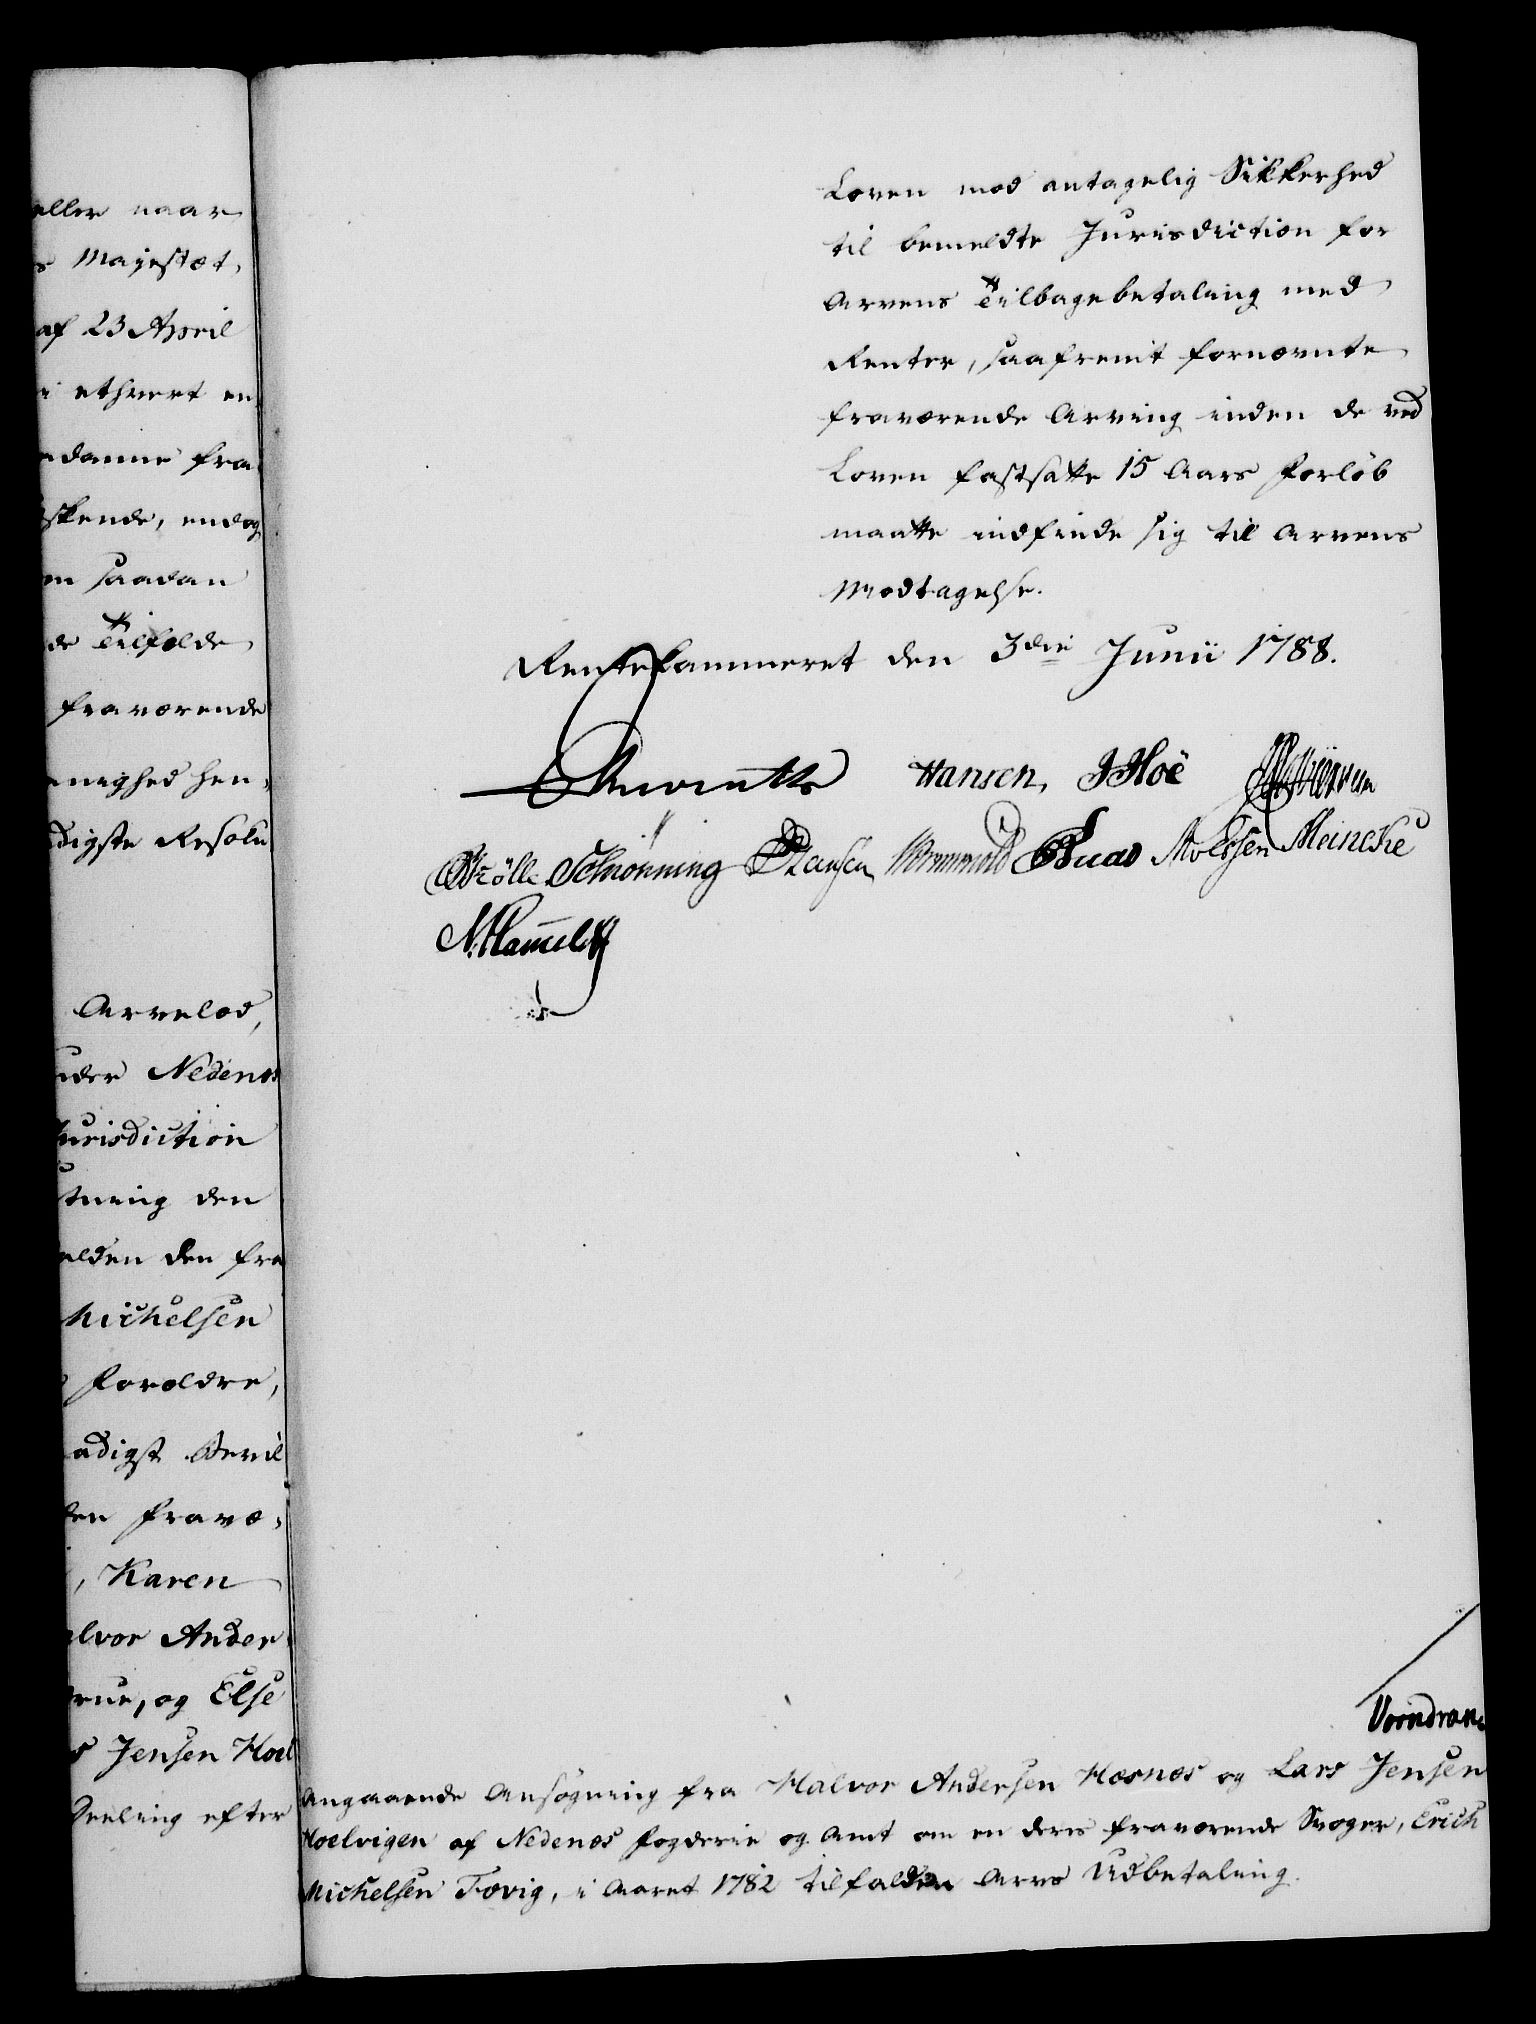 eller naar
s Majestæt,
af 23 April
i ethvert en
danne fra
skende, endog
en saadan
de Tilfælde
fraværende
nighed hen,
digste Resolu
Arvelod,
under Nedenes
Jurisdiction
tning den
falden den fra
Michelsen
Forældre,
adigst Bevil
den fravæ,
, Karen
alvor Ander
true, og Else
s Jensen Hoel
Deeling efter
Loven mod antagelig Sikkerhed
til bemeldte Jurisdiction for
Arvens Tilbagebetaling med
Renter, saafremt fornævnte
fraværende Arving inden de ved
Loven fastsatte 15 Aars Forløb
maatte indfinde sig til Arvens
Modtagelse.
Rentekammeret den 3die Junii 1788.
Hansen, JHoë
Schiønning Hansen Meincke
Vorndran
Angaaende Ansøgning fra Halvor Andersen Hæsnæs og Lars Jensen
Hoelvigen af Nedenæs Fogderie og Amt om en deres fraværende Svoger, Erich
Michelsen Fævig, i Aaret 1782 tilfalden Arvs Udbetaling.